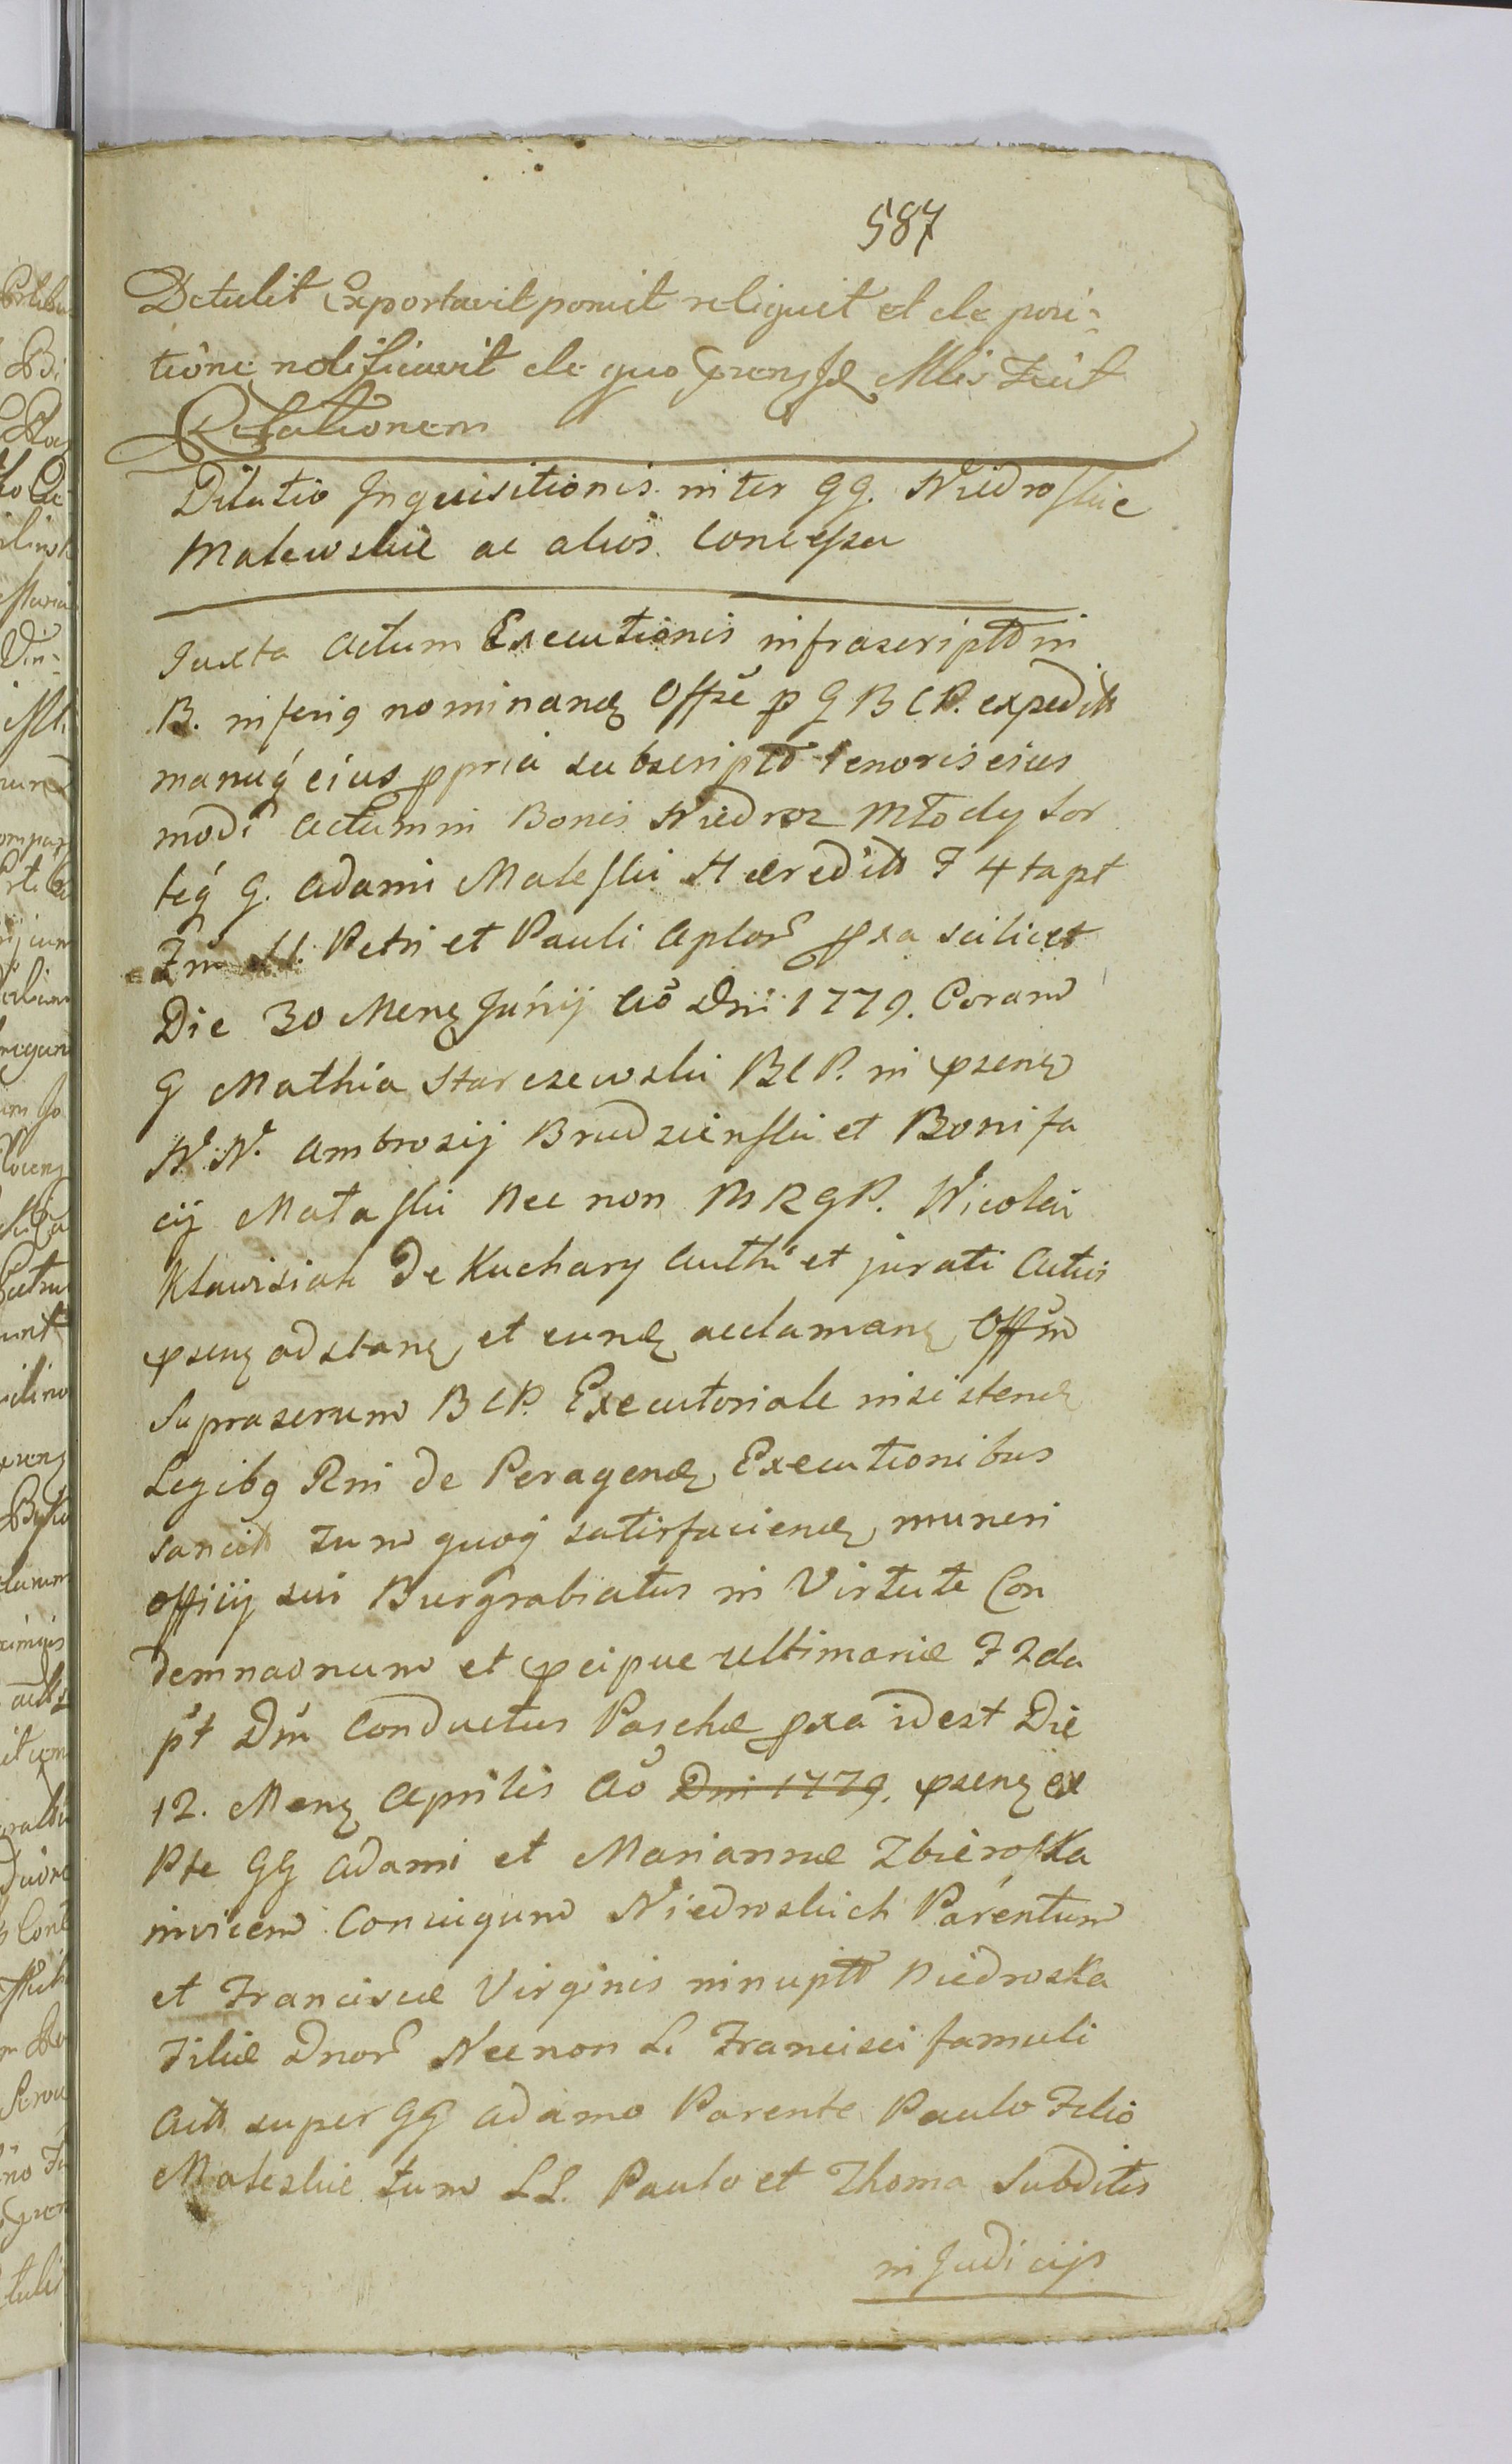 587
Detulit Exportavit posuit reliquit et de posi-
tione notificavit de quo prnsſ Mlis Fecit
Relationem
Dilatio Inquisitionis inter GG. Niedroſkie
Malewskie ac alios Conceſsa
Iuxta Actum Executionis infrascriptô in
B. inferiq nominanḍ Offże p G B C P. expeditt
manuq́ eius ppria subscriptô Tenoris eius
modi Actum in Bonis Niedroz Młody Sor
teq́ G. Adami Maleſki Hæreditt F 4ta pt
Fm SS. Petri et Pauli Aplor pxa scilicet
Die 30 Menṣ Junij Aō Dni 1779. Coram
G Mathia Starczewski BCP. in psenṭ
N. N. Ambrosij Brudzienſki et Bonifa
cij Mataſki Nec non MRGP. Nicolai
Kławisiak De Kuchary Authi et jurati Actui
psenṭ adstanṭ et eunḍ acclamanṭ Offm
Suprascrum BCP. Executoriale insistenḍ
Legibq Rni de Peragenḍ Executionibus
sancitt tum quoq́ satisfacienḍ muneri
officij sui Burgrabiatus in Virtute Con
demnaonum et pcipue ultimariæ F 2da
pt Dm Conductus Paschæ pxa idest Die
12. Menṣ Aprilis Aō Dni 1779. psenṭ ex
Pte GG Adami et Mariannæ Zbieroſka
invicem Conjugum Niedroskich Parentum
et Franciscæ Virginis innuptô Niedroska
Filiæ Dnor Necnon L. Francisci famuli
Actt super GG Adamo Parente Paulo Filio
Maleskie tum LL. Paulo et Thoma Subditis
in Judicijs